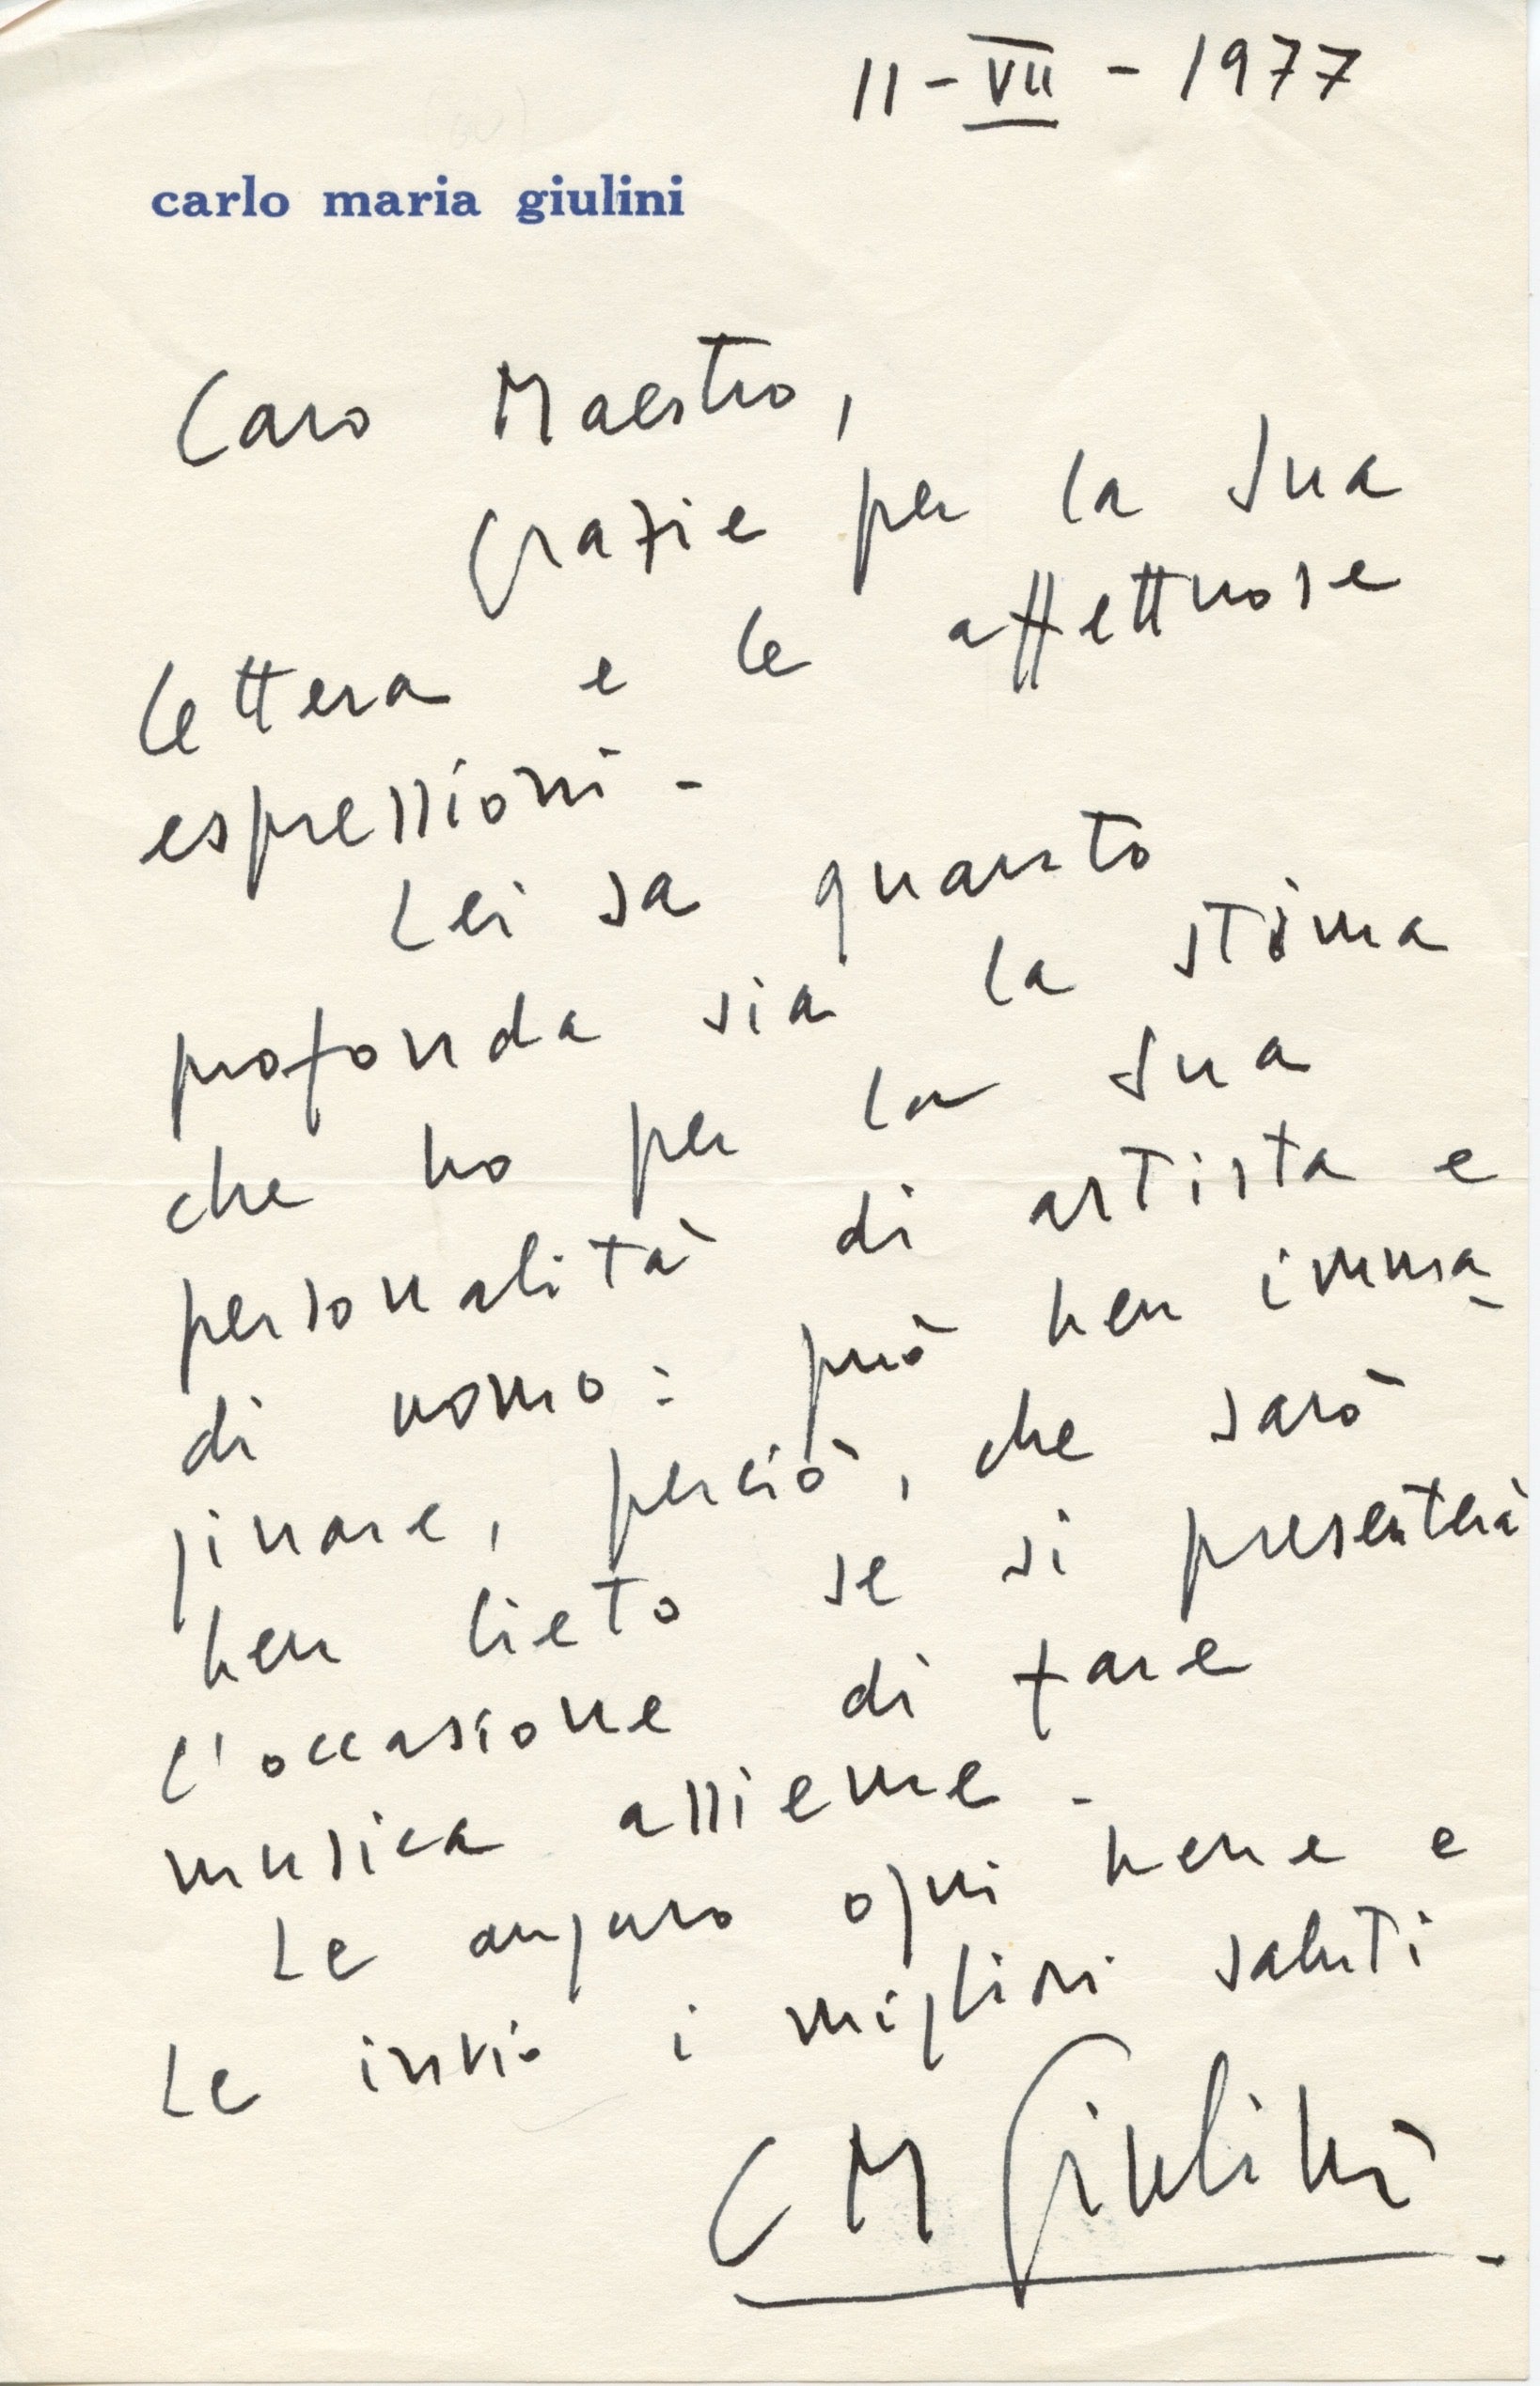 11 - VII - 1977
carlo maria giulini
Caro Maestro,
Grazie per la Sua
lettera e le affettuose
espressioni -
Lei sa quanto
profonda sia la stima
che ho per la Sua
personalità di artista e
di uomo: può ben imma-
ginare, perciò, che sarò
ben lieto se si presenterà
l'occasione di fare
musica assieme -
Le auguro ogni bene e
Le invio i migliori saluti
C M Giulini -